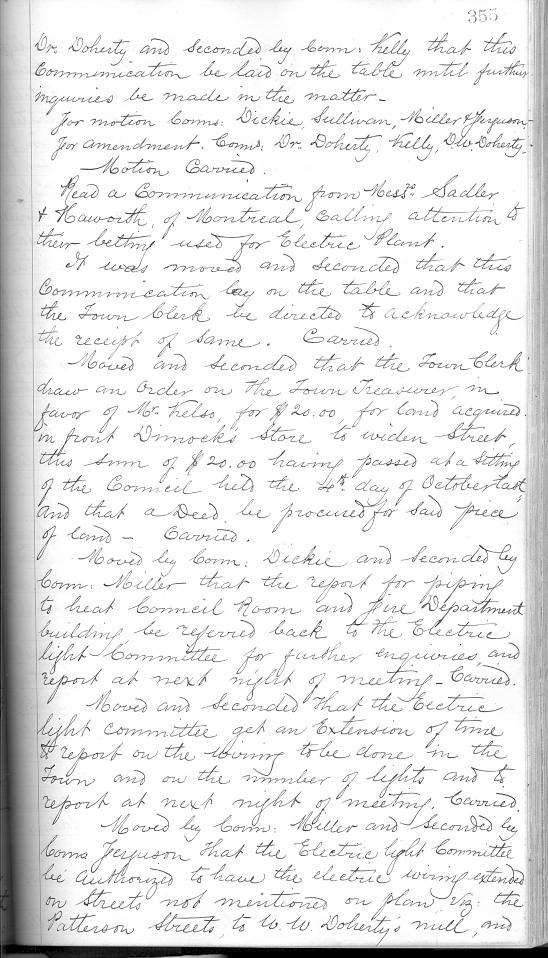 355
Dr. Doherty and seconded by Conn: Kelly that this
Communication be laid on the table until further
inquiries be made in the matter -
For motion Conns: Dickie, Sullivan, Miller & Ferguson.
For amendment. Conns, Dr. Doherty, Kelly, D.W. Doherty.
Motion Carried.
Read a Communication from Messrs. Sadler
& Haworth, of Montreal, calling attention to
their belting used for Electric Plant.
It was moved and seconded that this
Communication lay on the table and that
the Town Clerk be directed to acknowledge
the receipt of same. Carried.
Moved and seconded that the Town Clerk
draw an Order on the Town Treasurer, in
favor of Mr. Kelso, for $20.00, for land acquired
in front Dimocks Store to widen Street,
this sum of $20.00 having passed at a Sitting
of the Council held the 4th. day of October last,
and that a Deed be procured for said piece
of land - Carried.
Moved by Conn: Dickie and seconded by
Conn: Miller that the report for piping
to heat Council Room and Fire Department
building be referred back to the Electric
light Committee for further enquiries, and
report at next night of meeting - Carried.
Moved and seconded that the Eectric
light committee get an Extension of time
to report on the wiring to be done in the
Town and on the number of lights and to
report at next night of meeting. Carried.
Moved by Conn: Miller and seconded by
Conns Ferguson that the Electric light Committee
be authorized to have the electric wiring extended
on streets not mentioned on plan viz: the
Patterson streets, to W. W. Doherty's mill, and